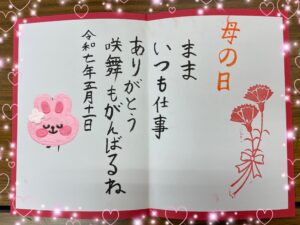 母の日
まま
いつも仕事
ありがとう
咲舞もがんばるね
令和七年五月十一日